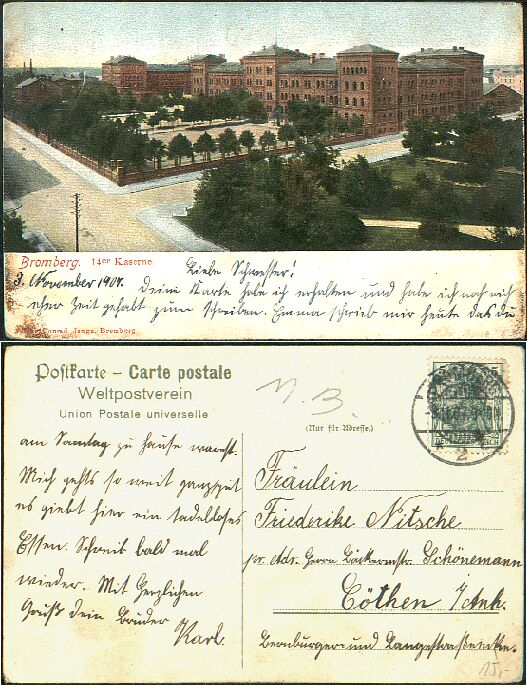 Bromberg. 14er Kaserne
3. November 1904. Liebe Schwester!
Deine Karte habe ich erhalten und habe ich noch nich
eher Zeit gehabt zum Schreiben. Emma schrieb mir heute das du
Conrad Junga, Bromberg.
Postkarte – Carte postale
Weltpostverein
Union Postale universelle
N. B.
(Nur für Adresse.)
am Sonntag zu Hause warst.
Mich gehts so weit ganz gut
es giebt hier ein tadelloses
Essen. Schreib bald mal
wieder. Mit Herzlichen
Gruß dein Bruder
Karl.
Fräulein
Friederike Nitsche
pr. Adr. Herrn Bäckermstr. Schönemann
Cöthen i/Anh.
Bernburger- und Langestraßenecke.
15,-